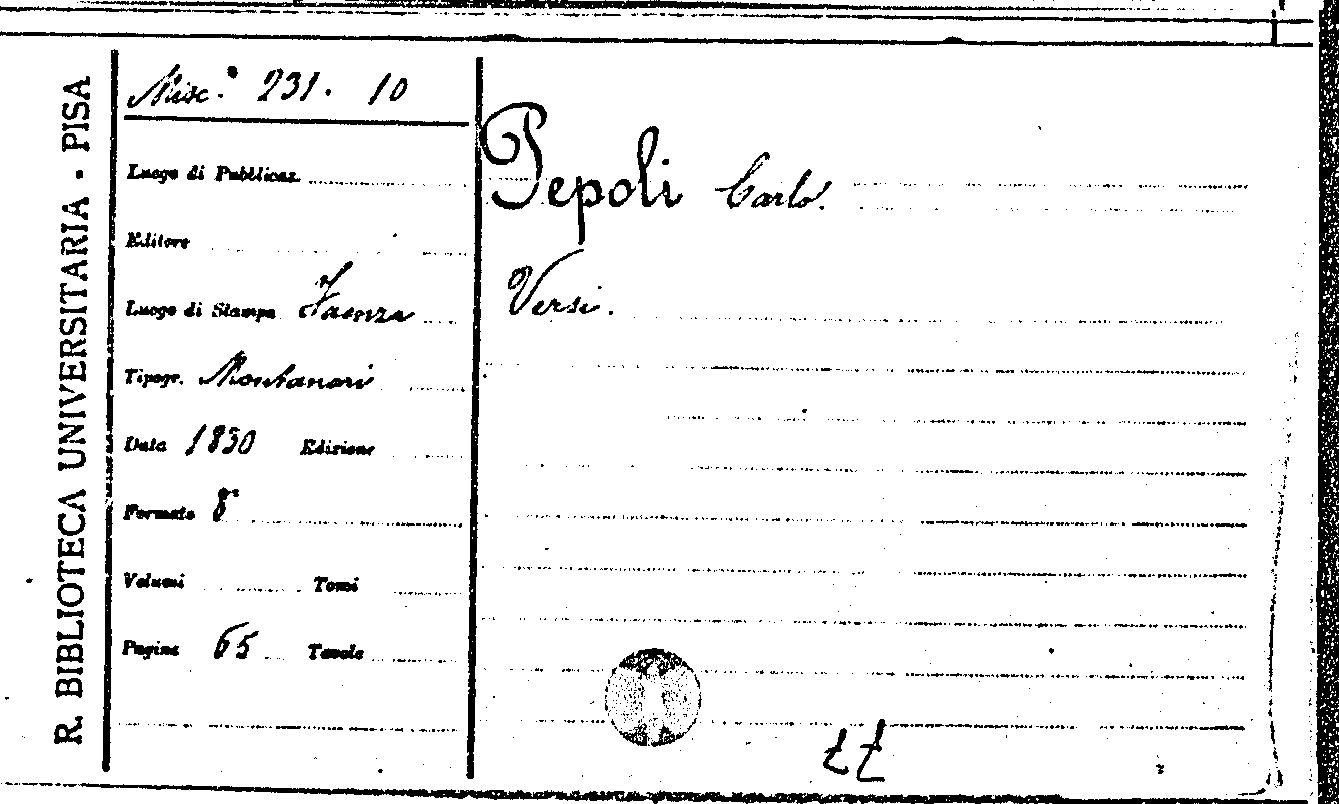 R. BIBLIOTECA UNIVERSITARIA - PISA
Misc.ª 231. 10
Luogo di Pubblicaz.
Editore
Luogo di Stampa Faenza
Tipogr. Montanari
Data 1830 Edizione
Formato 8°
Volumi Tomi
Pagine 65 Tavole
Pepoli Carlo.
Versi.